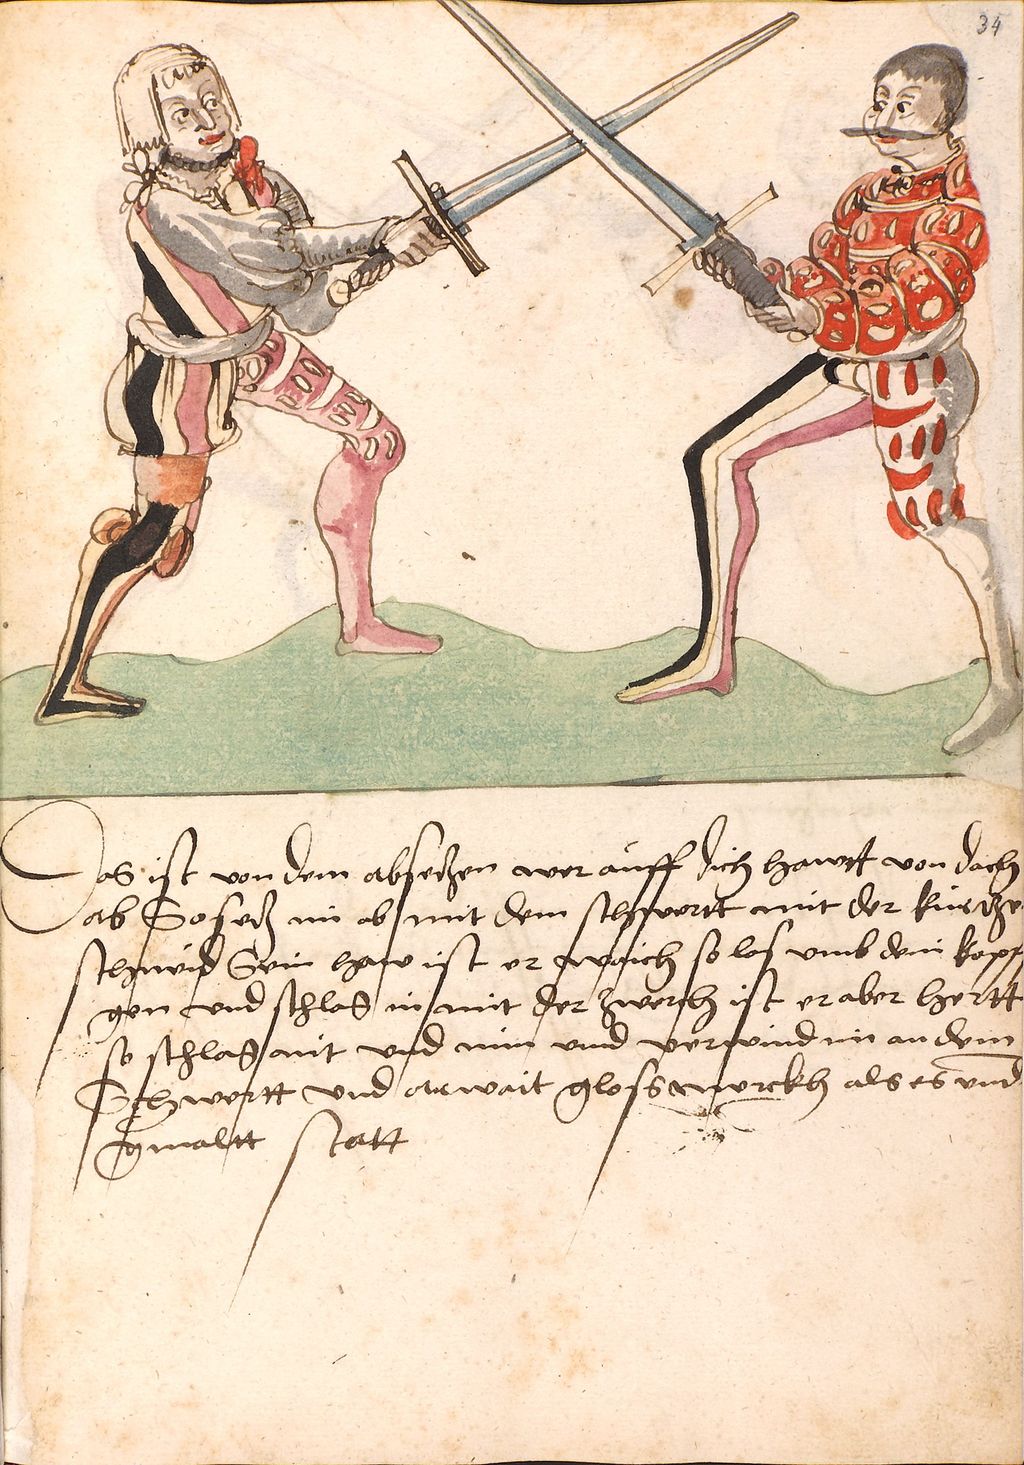 34
Das ist von dem absetzen wer auff dich hawt von dach
ab So setz im ab mit dem schwertt mit der kurtze
schneid Sein haw ist er waich so las umb dein kopff
gen und schlag in mit der zwerch ist er aber hertt
so schlag mit und nim und verwind im an dem
Schwertt und gloss als es und
gwaltt statt